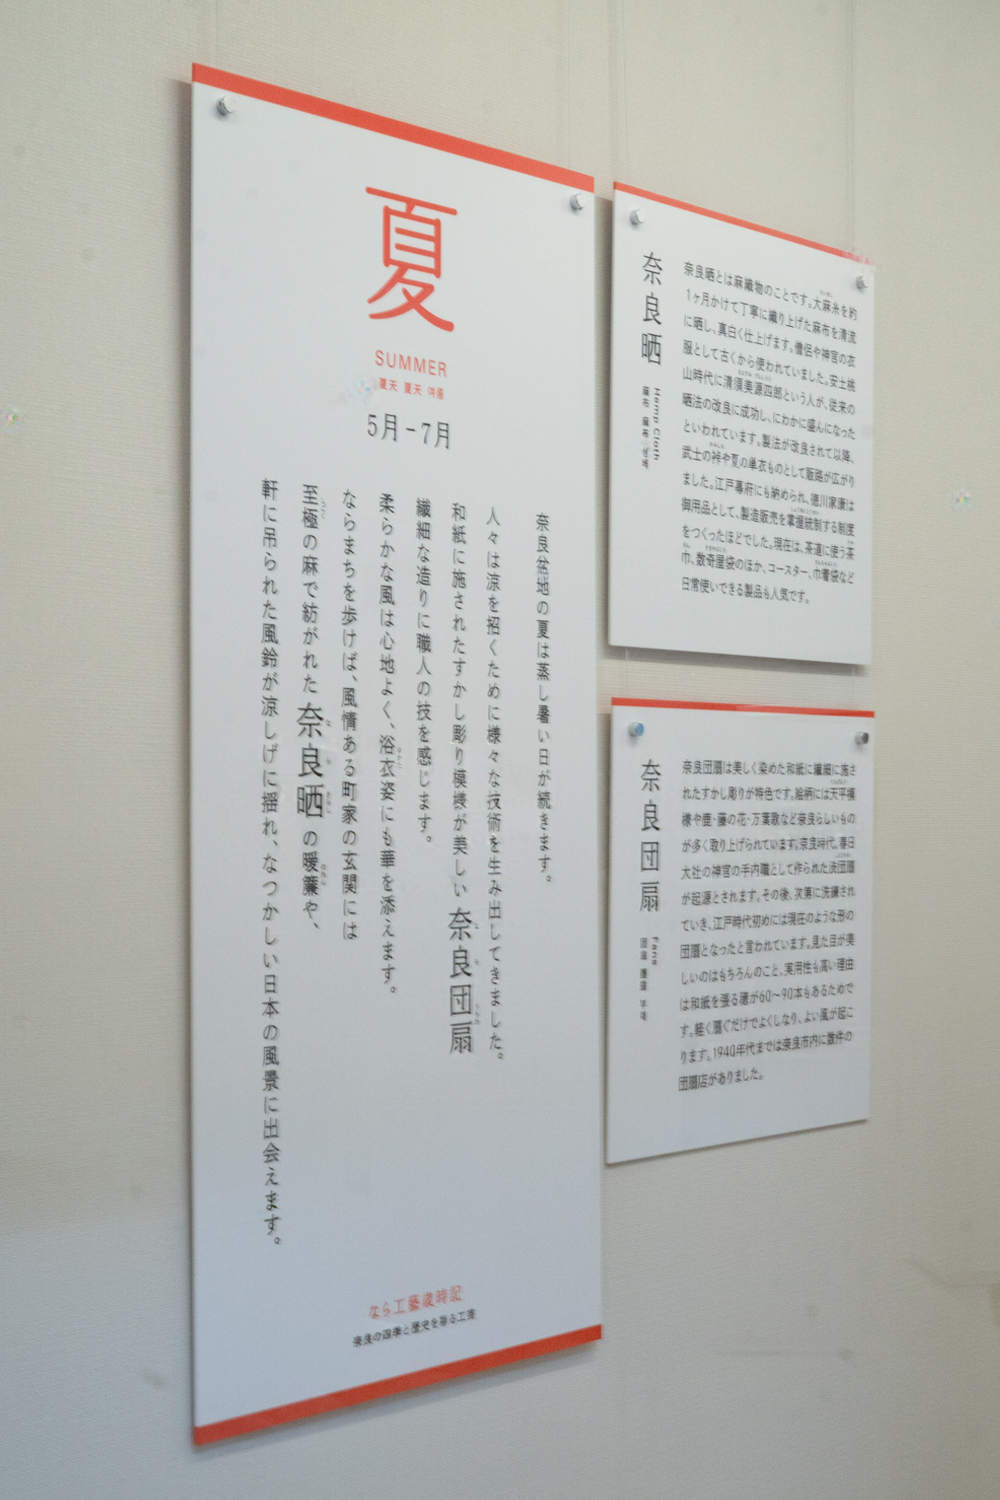 夏
SUMMER
夏天 夏天 여름
5月-7月
奈良盆地の夏は蒸し暑い日が続きます。
人々は涼を招くために様々な技術を生み出してきました。
和紙に施されたすかし彫り模様が美しい 奈良団扇
繊細な造りに職人の技を感じます。
柔らかな風は心地よく、浴衣姿にも華を添えます。
ならまちを歩けば、風情ある町家の玄関には
至極の麻で紡がれた 奈良晒 の暖簾や、
軒に吊られた風鈴が涼しげに揺れ、なつかしい日本の風景に出会えます。
なら工藝歳時記
奈良の四季と歴史を彩る工芸
奈良晒
Hemp Cloth
奈良晒とは麻織物のことです。大麻糸を約
1ヶ月かけて丁寧に織り上げた麻布を清流
に晒し、真白く仕上げます。僧侶や神官の衣
服として古くから使われていました。安土桃
山時代に清須美源四郎という人が、従来の
晒法の改良に成功し、にわかに盛んになった
といわれています。製法が改良されて以降、
武士の裃や夏の単衣ものとして販路が広がり
ました。江戸幕府にも納められ、徳川家康は
御用品として、製造販売を掌握統制する制度
をつくったほどでした。現在は、茶道に使う茶
巾、数奇屋袋のほか、コースター、巾着袋など
日常使いできる製品も人気です。
奈良団扇
Fans
奈良団扇は美しく染めた和紙に繊細に施さ
れたすかし彫りが特色です。絵柄には天平模
様や鹿・藤の花・万葉歌など奈良らしいもの
が多く取り上げられています。奈良時代、春日
大社の神官の手内職として作られた渋団扇
が起源とされます。その後、次第に洗練され
ていき、江戸時代初めには現在のような形の
団扇となったと言われています。見た目が美
しいのはもちろんのこと、実用性も高い理由
は和紙を張る骨が60〜90本もあるためで
す。軽く扇ぐだけでよくしなり、よい風が起こ
ります。1940年代までは奈良市内に数件の
団扇店がありました。